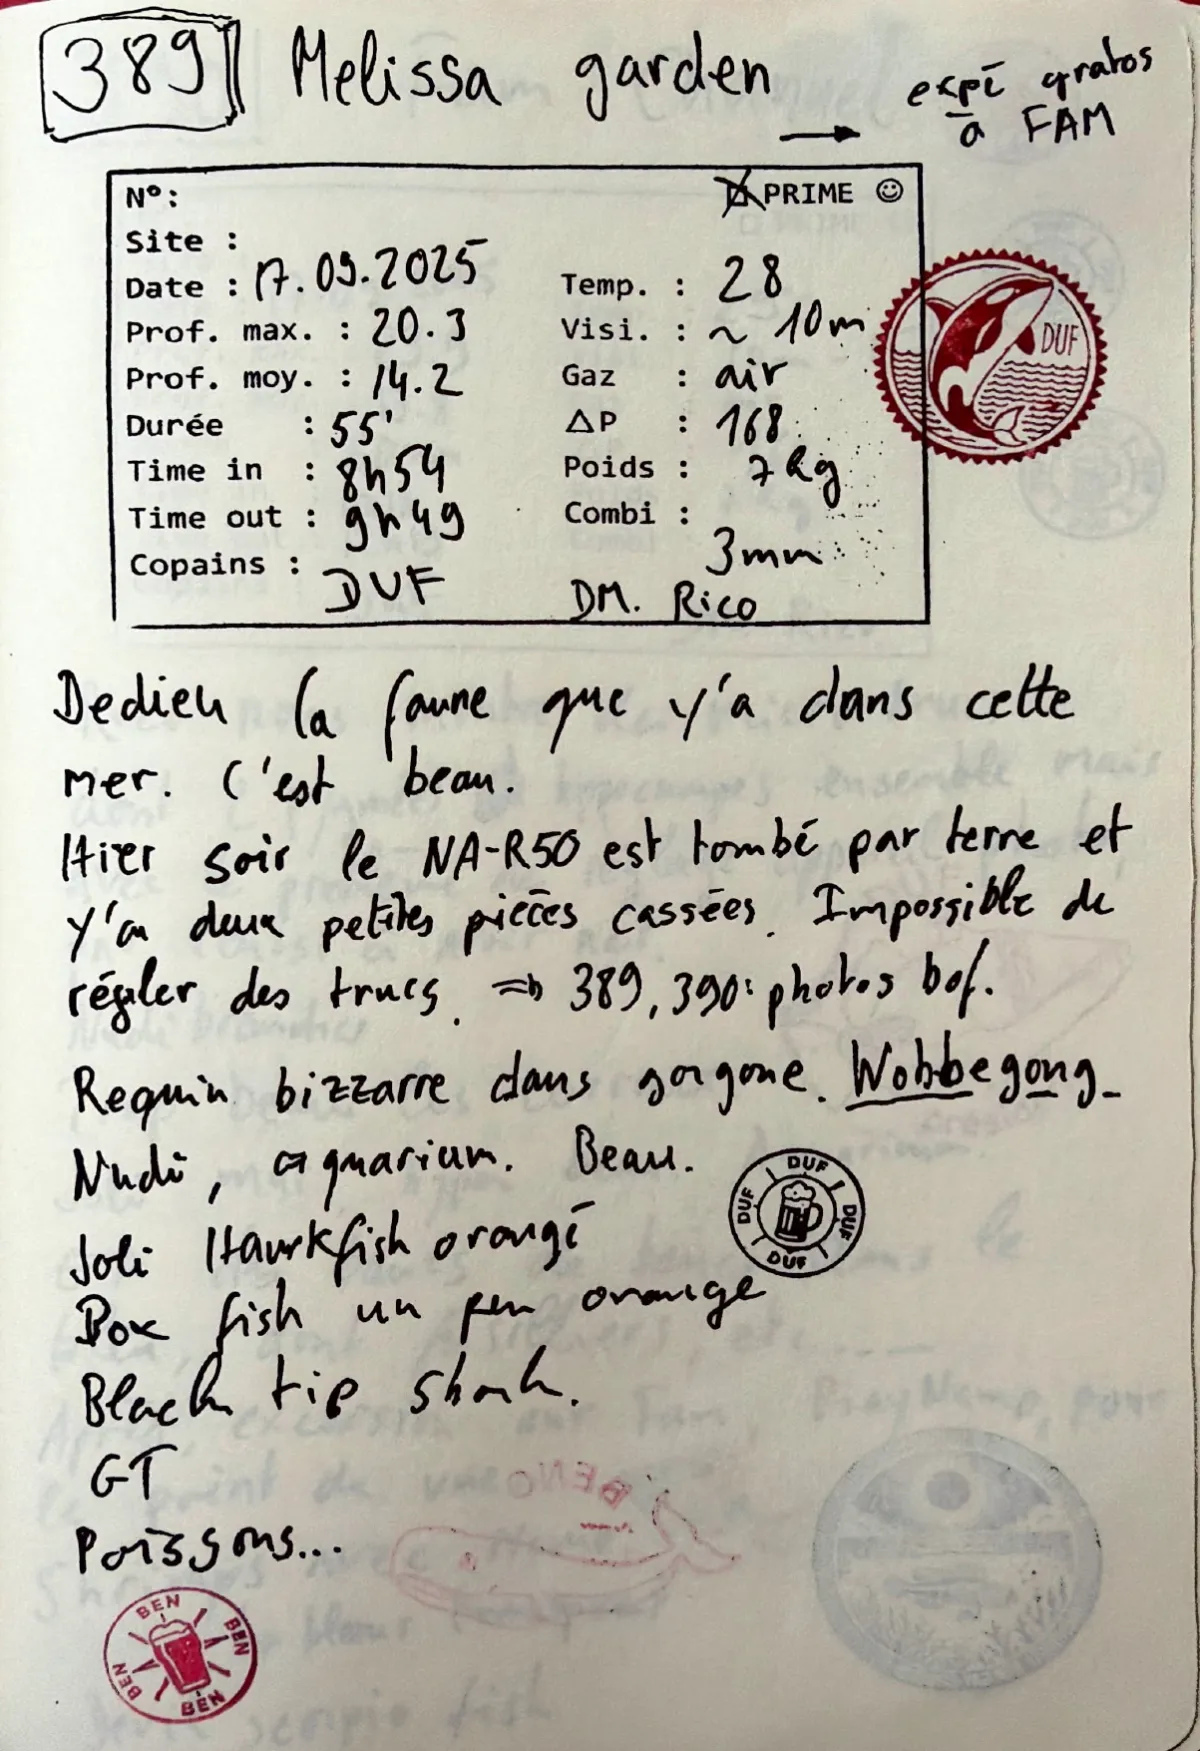 389 Melissa garden
→ expé gratos
à FAM
N°:
☒ PRIME ☺
Site :
Date : 17.09.2025
Temp. : 28
Prof. max. : 20.3
Visi. : ~ 10m
Prof. moy. : 14.2
Gaz : air
Durée : 55'
ΔP : 168
Time in : 8h54
Poids : 7kg
Time out : 9h49
Combi : 3mm
Copains : DUF
DM. Rico
DUF
Dedieu la faune que y'a dans cette
mer. C'est beau.
Hier soir le NA-R50 est tombé par terre et
y'a deux petites pièces cassées. Impossible de
régler des trucs. => 389, 390: photos bof.
Requin bizzarre dans gorgone. Wobbegong
Nudi, aquarium. Beau.
DUF DUF DUF DUF
Joli Hawkfish orangé
Box fish un peu orange
Black tip shark.
GT
Poissons...
BENO
BEN BEN BEN BEN